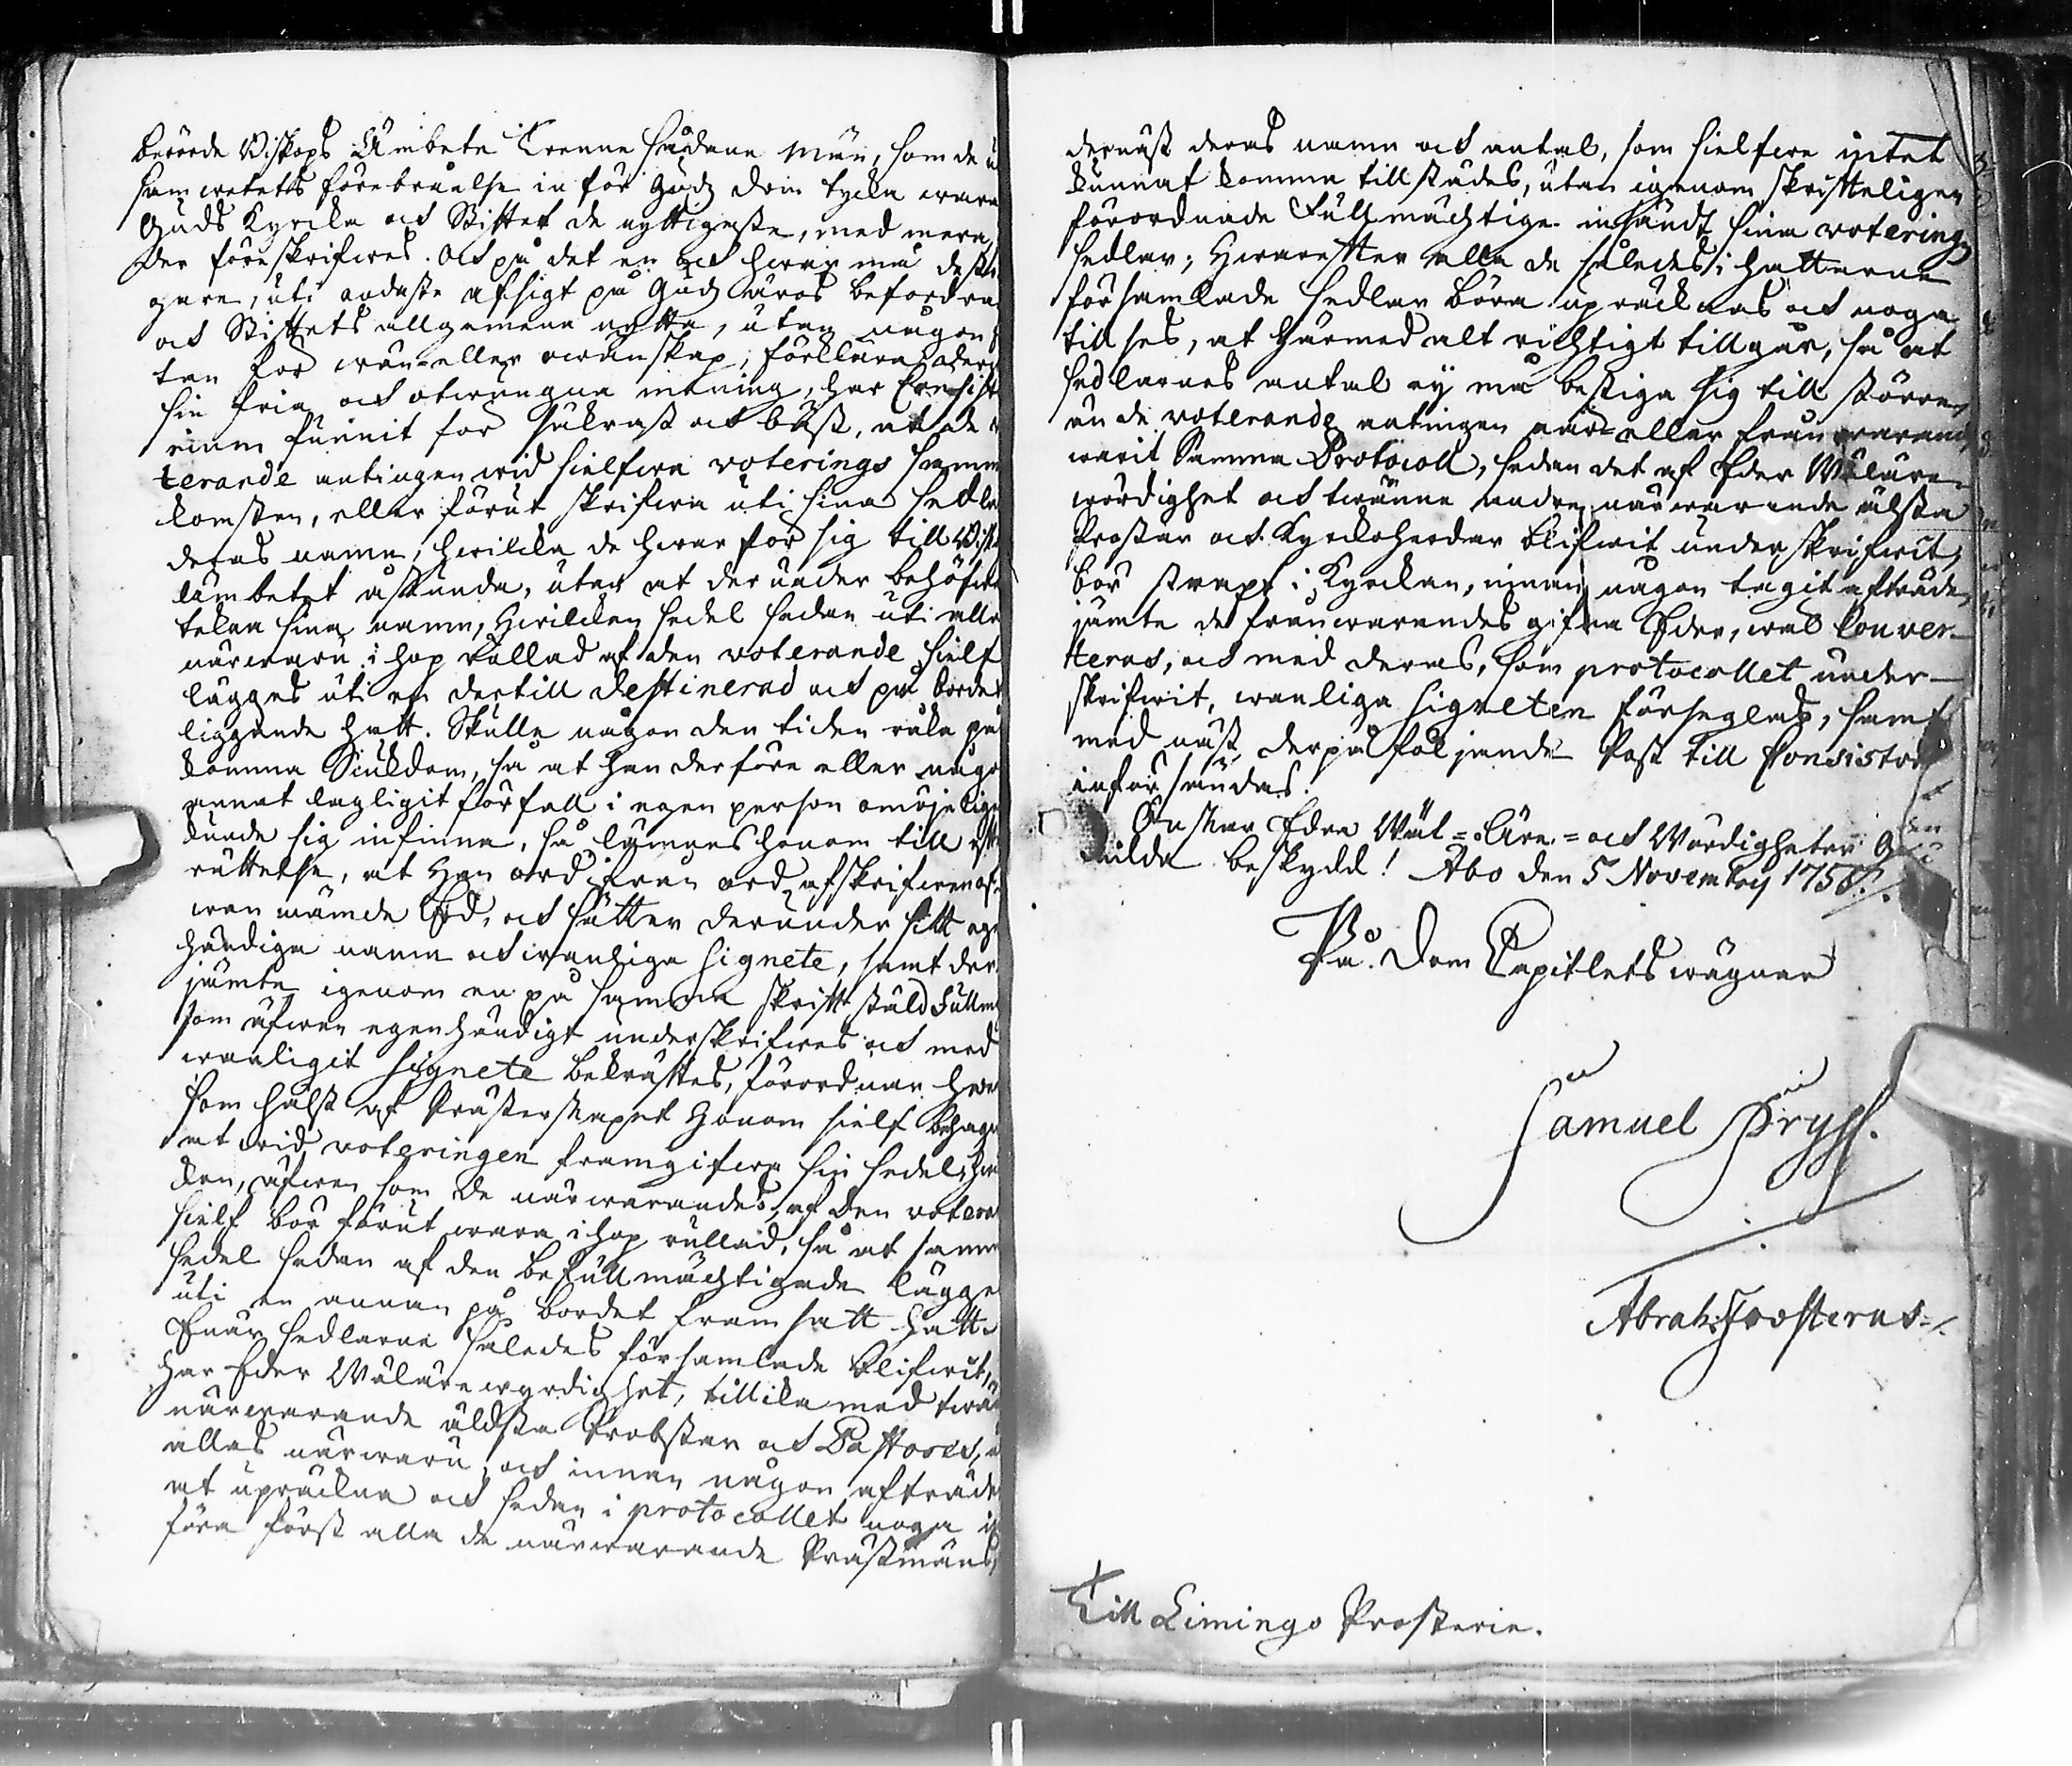 berörde Biskops Ämbete Trenne sådane Män, som de u
samwetets förebråelse in för Gud dem tycka wara
Guds Kyrcka och Stiftet de nyttigaste, med mera
der föreskrifwes. Och på det en och hwar må desto
gare, uti endaste afsigt på Guds äros befordra
och Stiftets allgemena nytta, utan någon
tan for wän- eller owänskap, förklara der
sin fria och otwungna mening, har Consisto
rium funnit for säkrast och bäst, at de
terande antingen wid sielfwa voterings samm
komsten, eller förut skrifwa uti sina sedla
deras namn, hwilcka de hwar för sig till Bisk
ämbetet åstunda, utan at der under behöfwa
tekna sina namn, Hwilcken sedel sedan uti alla
närwaru i hop rullad af den voterande sielf
lägges uti en dertill destinerad och på bordet
liggande hatt. Skulle någon den tiden råka på
komma Siukdom, så at han derföre eller någo
annat lagligit förfall i egen person omöjelig
kunde sig infinna, så lämnas honom till eft
rättelse, at Han ord ifrån ord afskrifwer of
wan nämde Ed, och sätter derunder sitt ege
händiga namn och wanliga signete, samt der
jämte igenom en på samma skrift stäld Fullm
som äfwen egenhändigt underskrifwes och med
wanligit signete bekräftes, förordnar hwe
som hälst af Prästerskapet Honom sielf behaga
at wid voteringen framgifwa sin sedel, hwi
ken, äfwen som de närwarandes, af den votera
sielf bör förut wara ihop rullad, så at samm
sedel sedan af den befullmächtigade lägge
uti en annan på bordet framsatt hatt.
Enär sedlarne således församlade blifwit,
har Eder Wälärewyrdighet, tillika med twä
närwarande äldsta Probstar och Pastores,
allas närwaru, och innan någon afträde
at upräkna och sedan i protocollet noga i
föra först alla de närwarande Prästmäns
dernäst deras namn och antal, som sielfwe intet
kunnat komma tillstädes, utan igenom skrifteligen
förordnade Fullmächtige insändt sina voterings
sedlar; Hwarefter alla de således i hattarne
församlade sedlar böra upräcknas och noga
till ses, at härmed alt richtigt tillgår, så at
sedlarnes antal ej må bestiga sig till större,
än de voterande antingen när- eller frånwarande
warit Samma Protocoll, sedan det af Eder Wäläre-
wördighet och twänne andre närwarande älsta
Prostar och Kyrckoherdar blifwit underskrifwit,
bör strax i Kyrckan, innan någon tagit afträde,
jämte de frånwarandes gifna Eder, wäl Couver-
teras, och med deras, som protocollet under-
skrifwit, wanliga signeten förseglas, samt
med näst derpåföljande Post till Consistor
införsändas.
Önskar Edra Wäl- Äre- och Wördigheter G
milda beskydd! Åbo den 5 Novembr 1756.
På Dom Capitlets wägnar
Samuel Pryss.
Abrah: Frosterus
Till Limingo Prosterie.